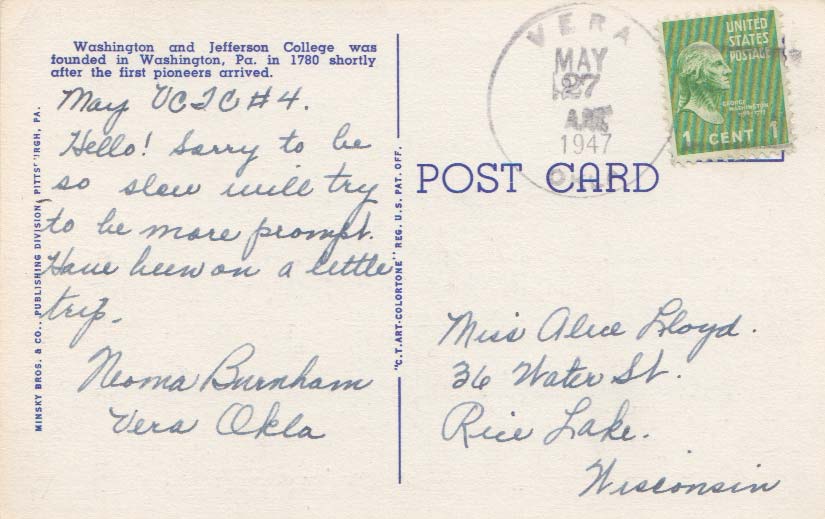 Washington and Jefferson College was
founded in Washington, Pa. in 1780 shortly
after the first pioneers arrived.
May VCIC #4.
Hello! Sorry to be
so slow will try
to be more prompt.
Have been on a little
trip.
Neoma Burnham
Vera Okla
MINSKY BROS. & CO., PUBLISHING DIVISION, PITTSBURGH, PA.
"C.T. ART-COLORTONE" REG. U.S. PAT. OFF.
POST CARD
VERA
MAY
27
A.M.
1947
OKLA.
UNITED
STATES
POSTAGE
GEORGE
WASHINGTON
1 CENT 1
Miss Alice Lloyd.
36 Water St.
Rice Lake.
Wisconsin